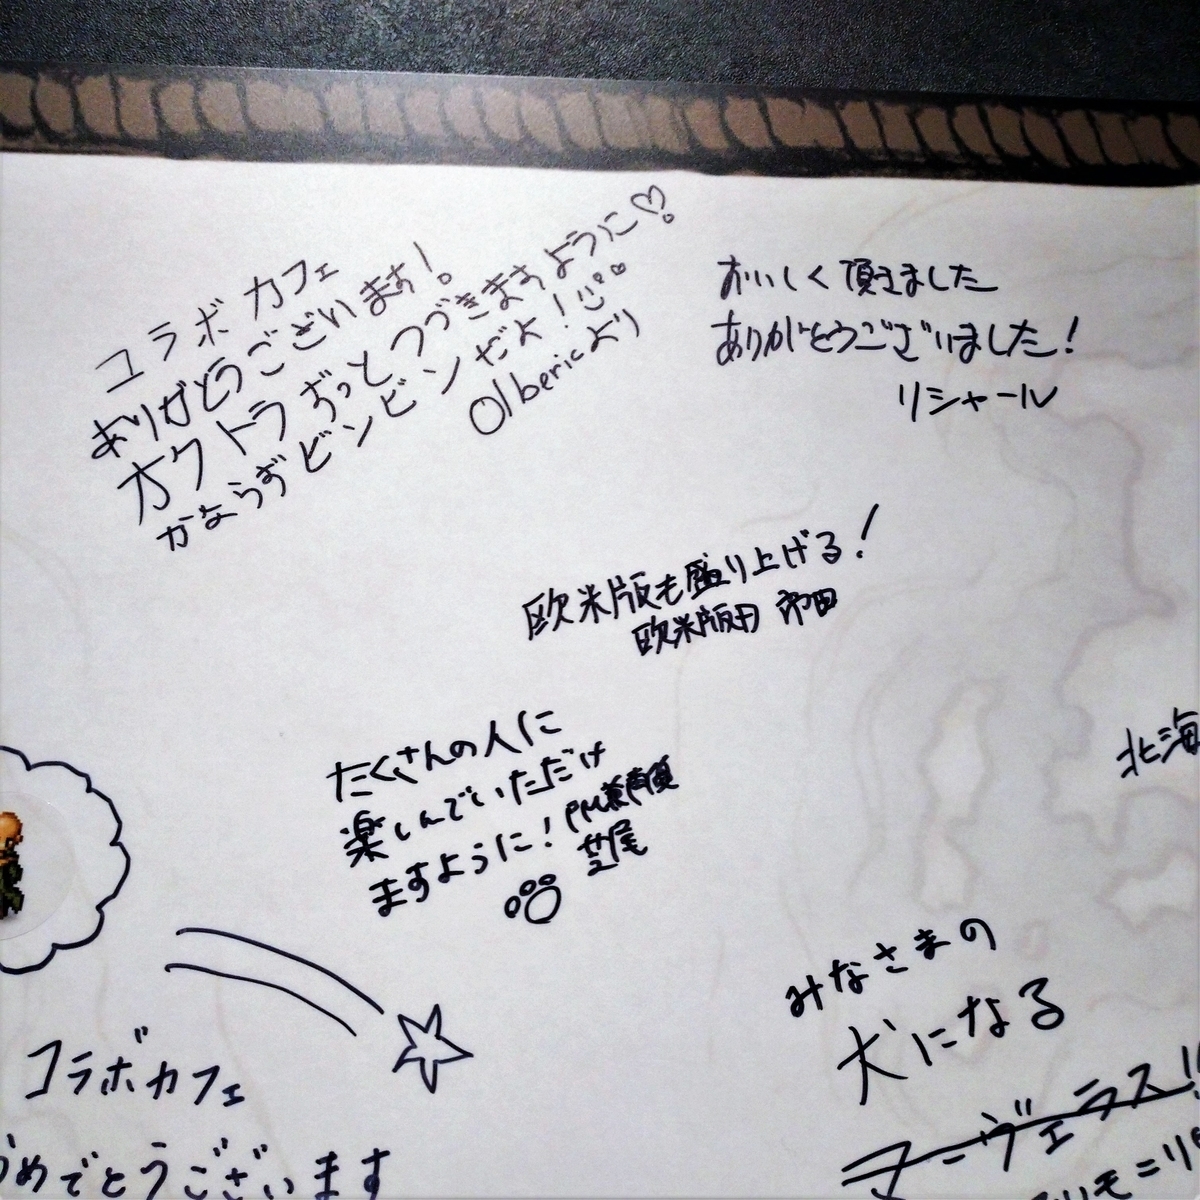 コラボカフェ
ありがとうございます!
オクトラずっとつづきますように♡
かならずビンビンビンだよ!
Olbericより
おいしく頂きました
ありがとうございました!
リシャール
欧米版も盛り上げる!
欧米版 市田
たくさんの人に
楽しんでいただけ
ますように!
PM兼
芝尾
北海
みなさまの
犬になる
マーヴェラス!!
コラボカフェ
おめでとうございます